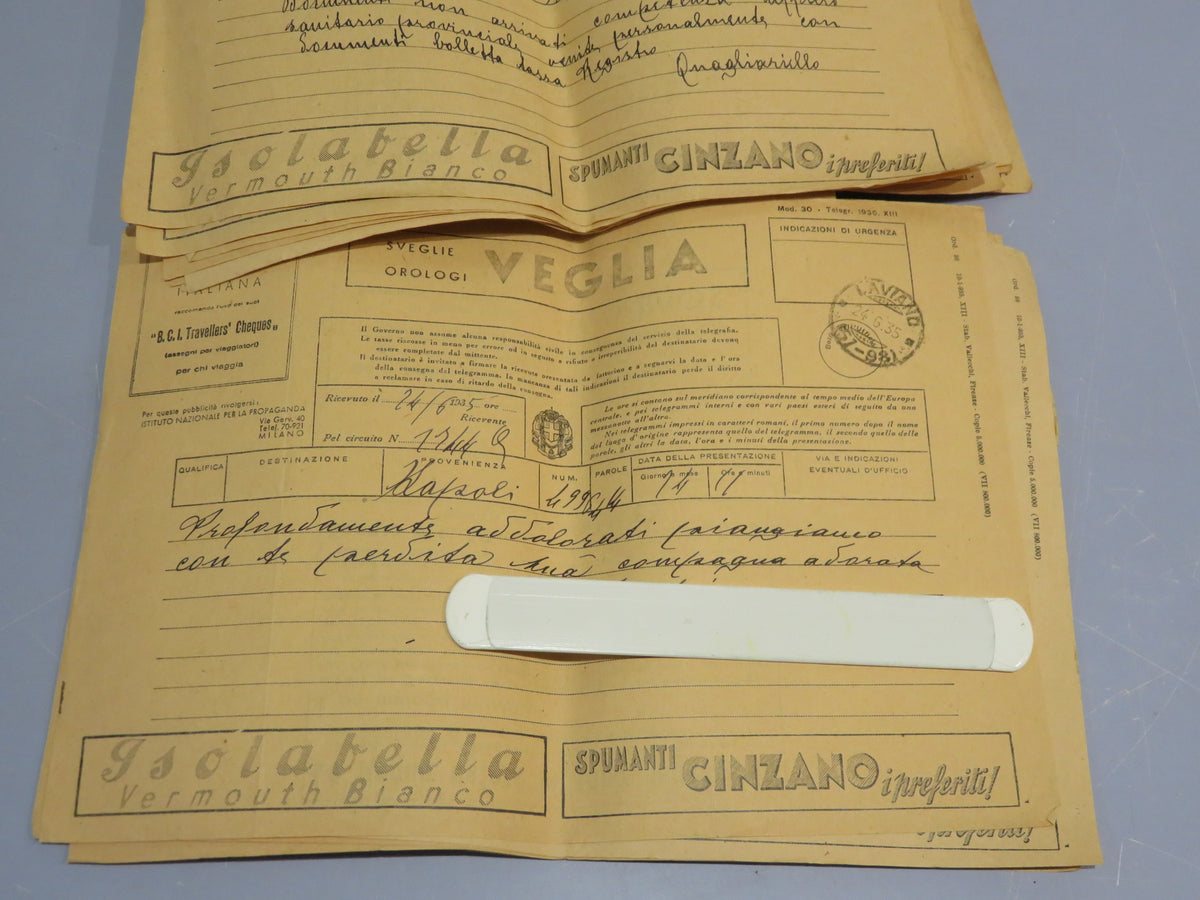 Documenti non arrivati competenza
sanitario provinciale venite personalmente con
Documenti bolletta tassa Registro Quagliariello
Isolabella
Vermouth Bianco
SPUMANTI CINZANO i preferiti!
Mod. 30 - Telegr. 1930, XIII
ITALIANA
raccomanda l'uso dei suoi
"B.C.I. Travellers' Cheques"
(assegni per viaggiatori)
per chi viaggia
SVEGLIE
OROLOGI
VEGLIA
INDICAZIONI DI URGENZA
LAVIANO
24.6.35
Per questa pubblicità rivolgersi:
ISTITUTO NAZIONALE PER LA PROPAGANDA
Via Gorv. 40
Telef. 70-921
MILANO
Il Governo non assume alcuna responsabilità civile in conseguenza del servizio della telegrafia.
Le tasse riscosse in meno per errore od in seguito a rifiuto o irreperibilità del destinatario devono
essere completate dal mittente.
Il destinatario è invitato a firmare la ricevuta presentata dal fattorino e a segnarvi la data e l'ora
della consegna del telegramma. In mancanza di tali indicazioni il destinatario perde il diritto
a reclamare in caso di ritardo della consegna.
Ricevuto il 24/6 1935 ore
Ricevente
Pel circuito N. 1744
Le ore si contano sul meridiano corrispondente al tempo medio dell'Europa
centrale, e pei telegrammi interni e con vari paesi esteri di seguito da una
mezzanotte all'altra.
Nei telegrammi impressi in caratteri romani, il primo numero dopo il nome
del luogo d'origine rappresenta quello del telegramma, il secondo quello delle
parole, gli altri la data, l'ora e i minuti della presentazione.
QUALIFICA DESTINAZIONE PROVENIENZA NUM. PAROLE DATA DELLA PRESENTAZIONE VIA E INDICAZIONI
Giorno e mese Ore e minuti EVENTUALI D'UFFICIO
Napoli
Profondamente addolorati piangiamo
con te perdita tua compagna adorata
Ord. 98 10-1-935, XIII - Stab. Vallecchi, Firenze - Copie 5.000.000 (VII 800.000)
Ord. 98 10-1-935, XIII - Stab. Vallecchi, Firenze - Copie 5.000.000 (VII 800.000)
Isolabella
Vermouth Bianco
SPUMANTI CINZANO i preferiti!
i preferiti!